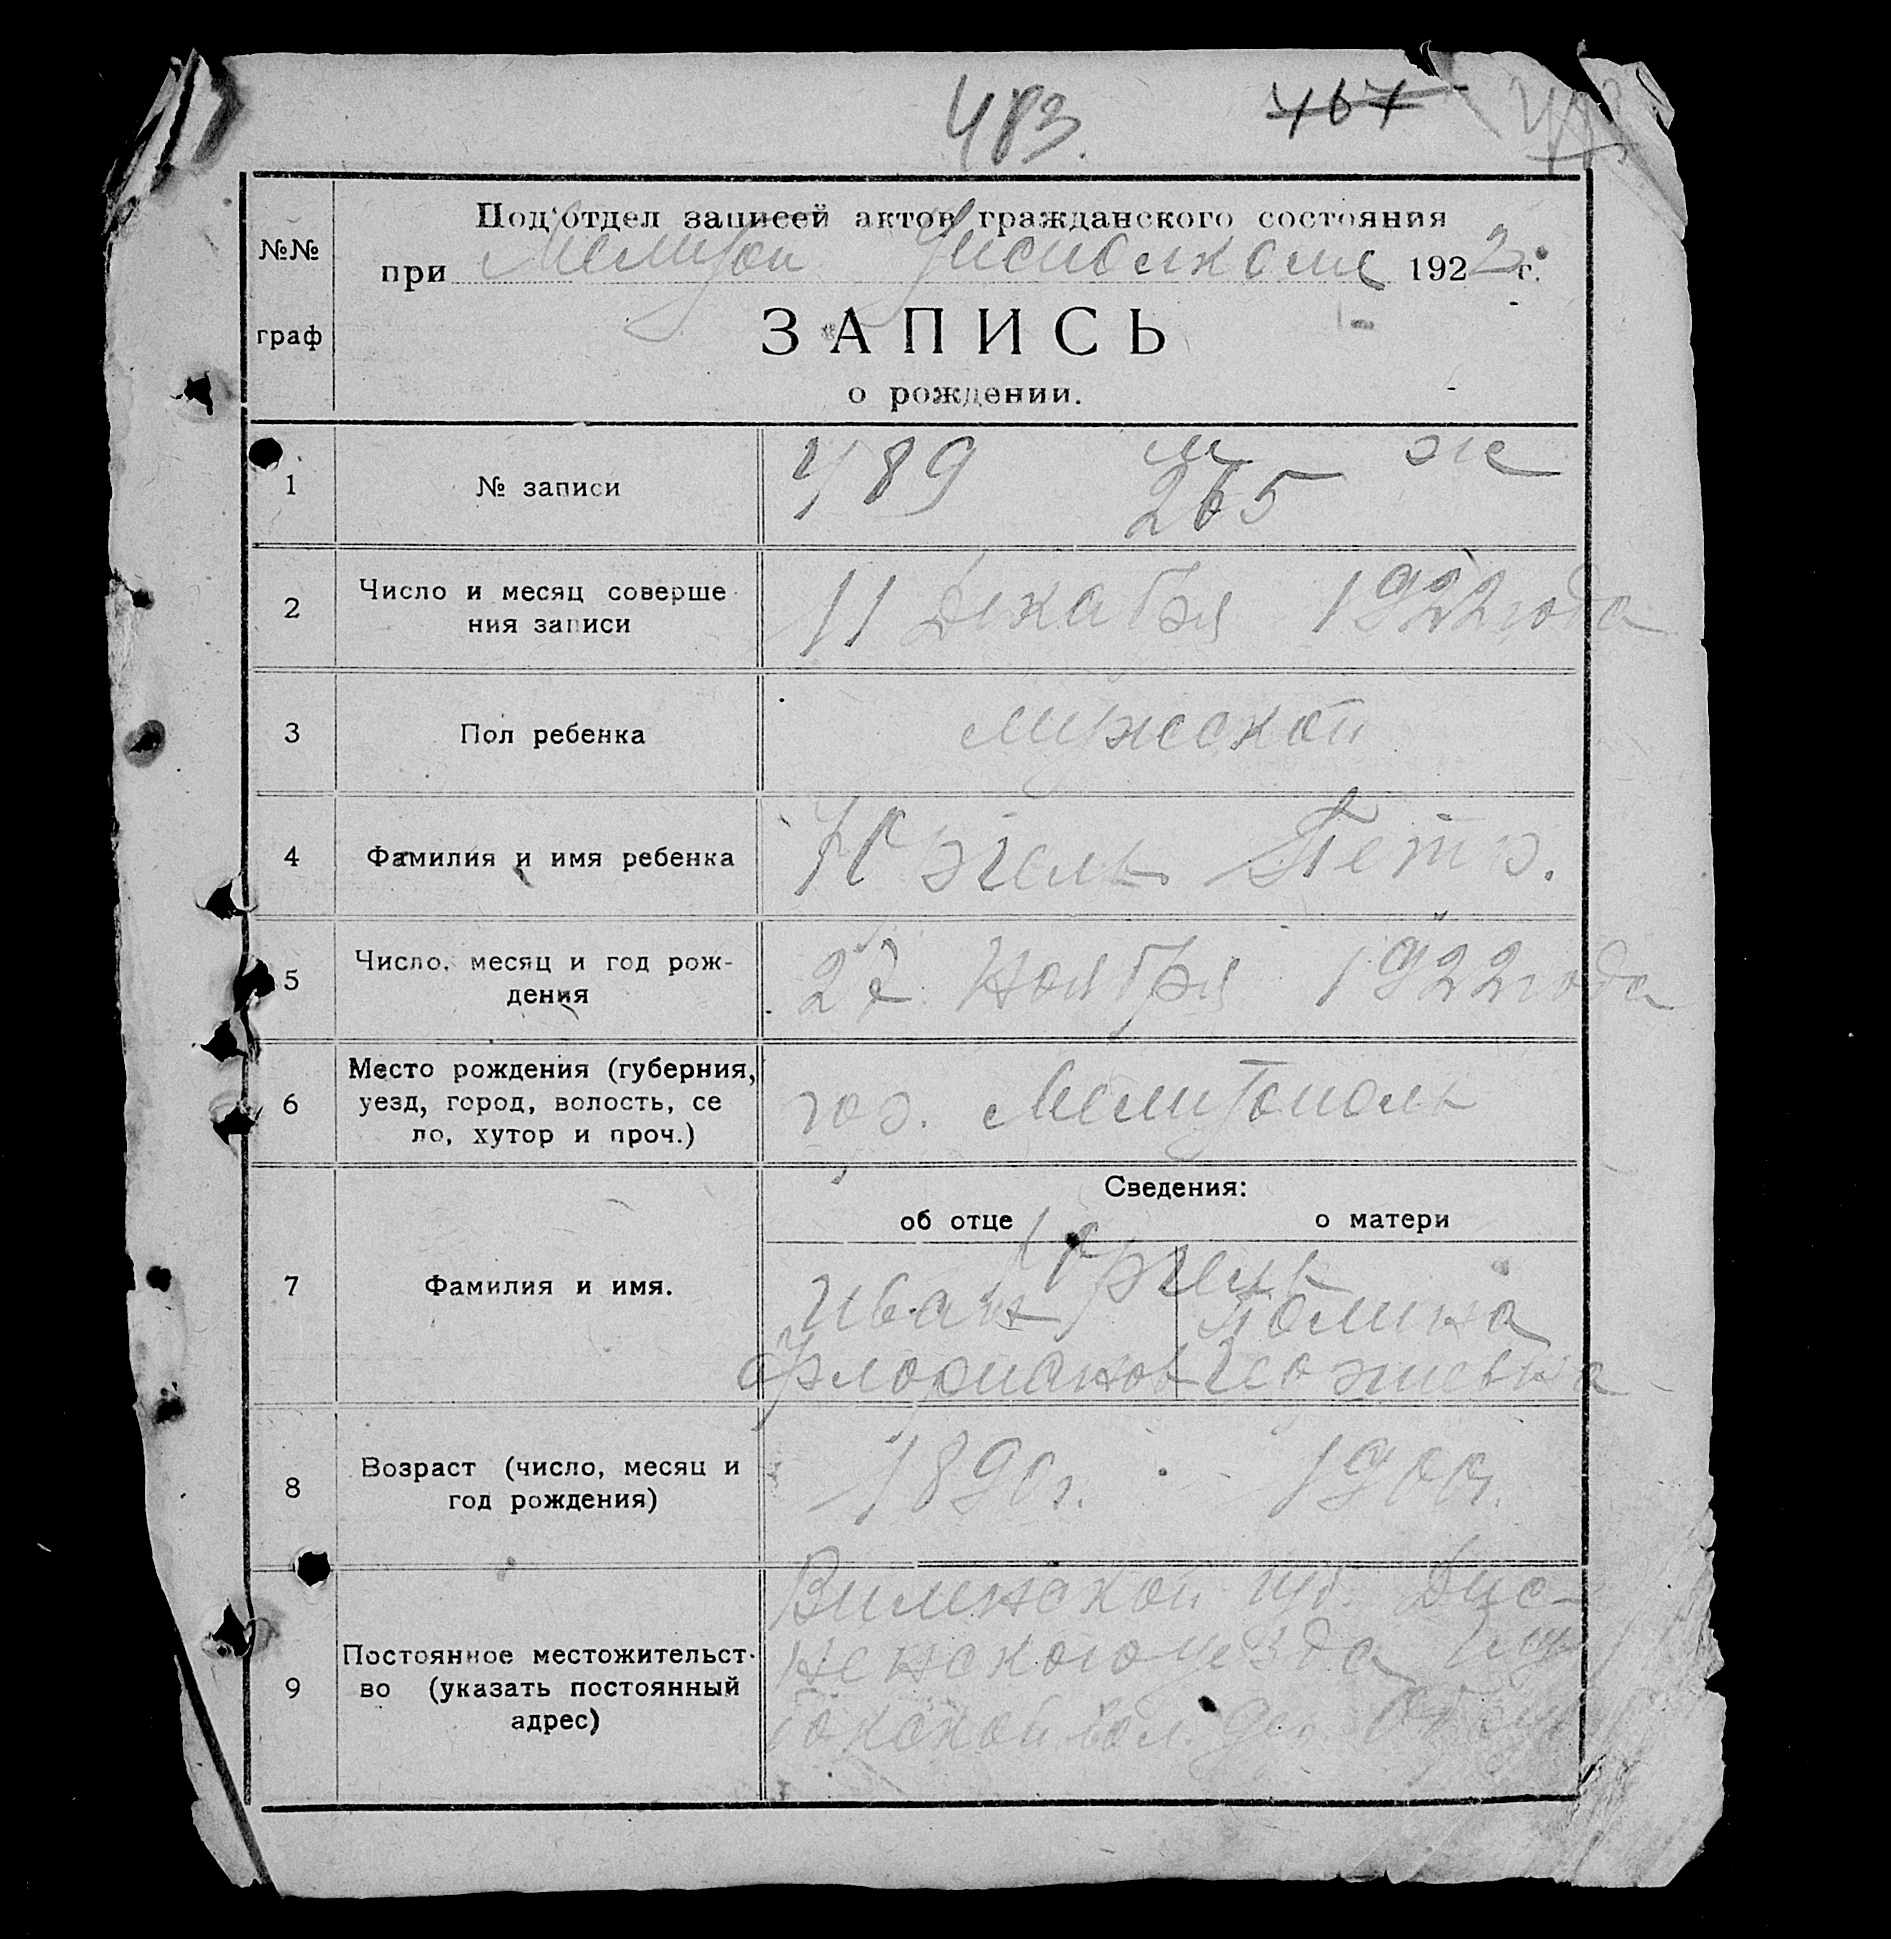 483.
467
№№ граф
Под'отдел записей актов гражданского состояния
при Мелитоп Уисполкоме 1922 г.
ЗАПИСЬ
о рождении.
1 № записи 489 м 265 ж
2 Число и месяц соверше
ния записи
11 Декабря 1922 года
3 Пол ребенка мужской
4 Фамилия и имя ребенка Петр.
5 Число, месяц и год рож-
дения
27 Ноября 1922 года
6 Место рождения (губерния,
уезд, город, волость, се
ло, хутор и проч.)
гор. Мелитополь
Сведения:
об отце о матери
7 Фамилия и имя.
Иван Полина
Флорианов
8 Возраст (число, месяц и
год рождения)
1890г. 1900г.
9 Постоянное местожительст-
во (указать постоянный
адрес)
Виленской губ. Дис-
ненского уезда
вол. дер.